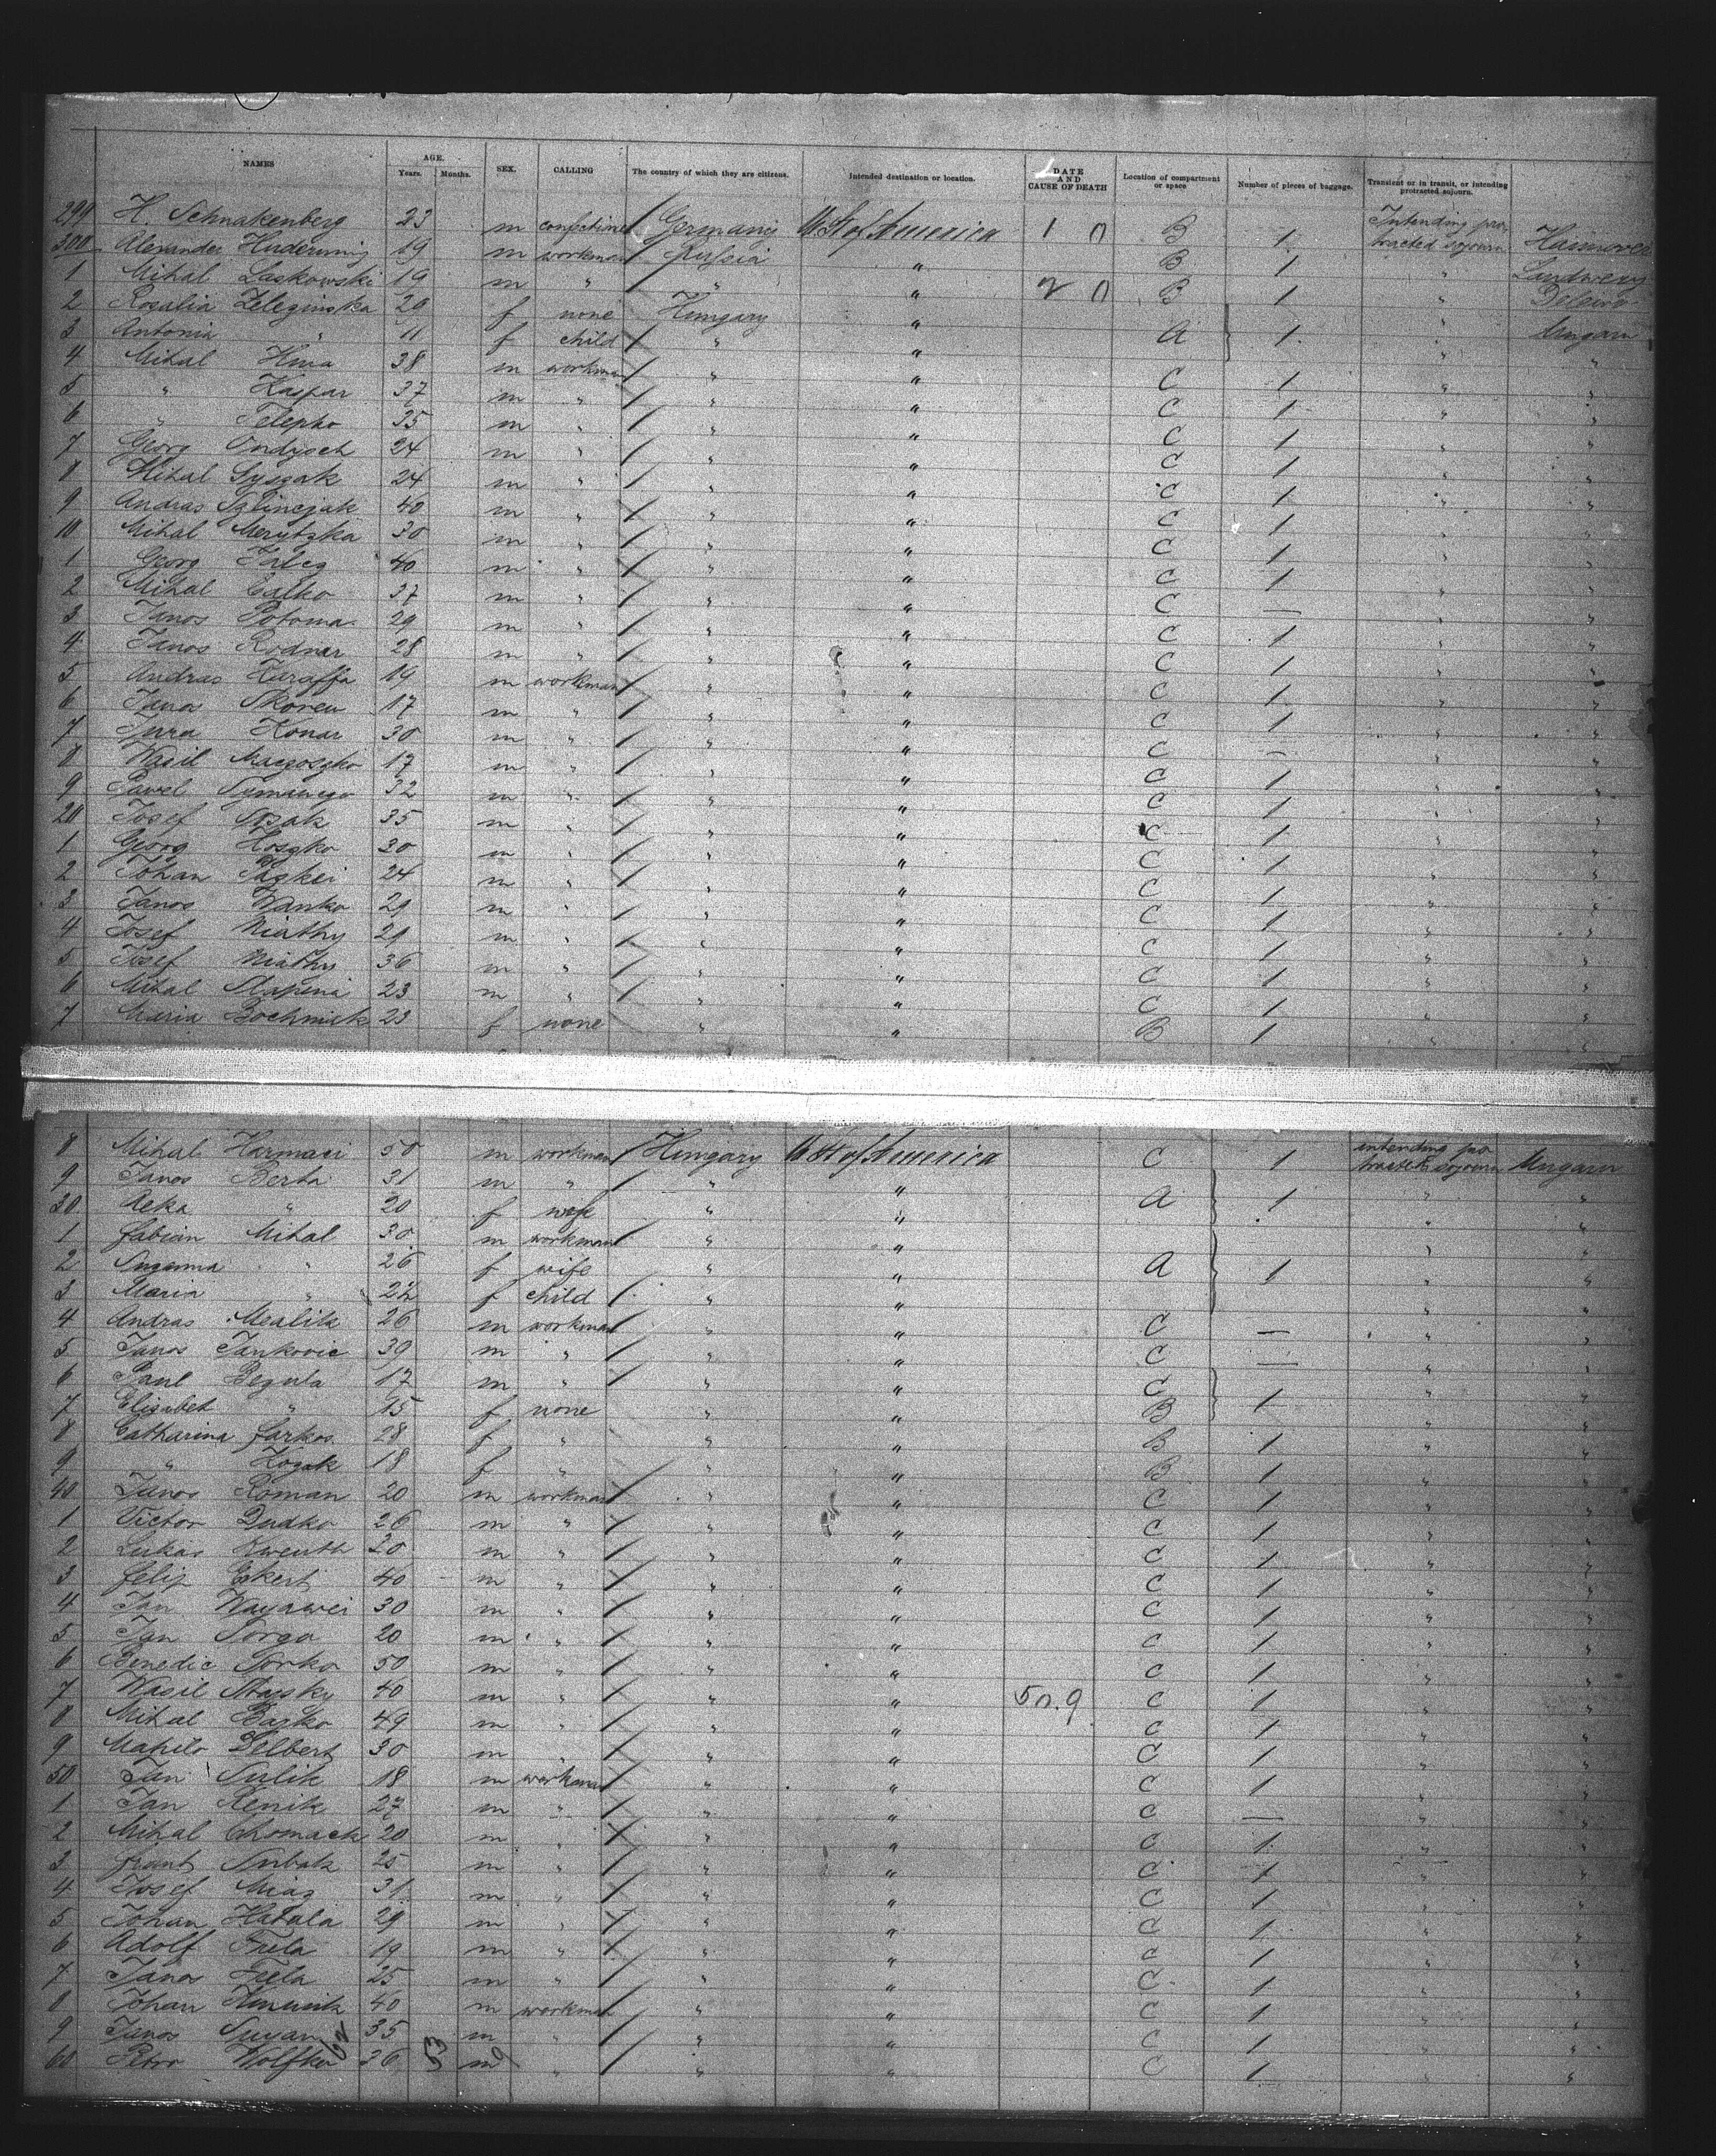 NAMES AGE. Years. Months. SEX. CALLING The country of which they are citizens. Intended destination or location. DATE AND CAUSE OF DEATH Location of compartment or space Number of pieces of baggage. Transient or in transit, or intending protracted sojourn.
299 H. Schnakenberg 23 m confectioner Germany U St of America 1 0 B 1 Intending pro- tracted sojourn Hannover
300 Alexander 19 m workman Russia " B 1 "
1 Mihal Laskowski 19 m " " " 2 0 B 1 "
2 Rosalia Zeleginska 20 f none Hungary " A 1 " Ungarn
3 Antonia " 11 f child " " " "
4 Mihal 38 m workman " " C 1 " "
5 " Kaspar 37 m " " " C 1 " "
6 " Telepko 35 m " " " C 1 " "
7 Georg Ondysch 24 m " " " C 1 " "
8 Mihal 24 m " " " C 1 " "
9 Andras 40 m " " " C 1 " "
10 Mihal 30 m " " " C 1 " "
1 Georg 40 m " " " C 1 " "
2 Mihal Calko 37 m " " " C — " "
3 Janos Potoma 29 m " " " C 1 " "
4 Janos Rodner 28 m " " " C 1 " "
5 Andras Haraffa 19 m workman " " C 1 " "
6 Janos Skoren 17 m " " " C 1 " "
7 Jura Konar 30 m " " " C — " "
8 Wasil Maczoszko 17 m " " " C 1 " "
9 Pavel 32 m " " " C 1 " "
20 Josef Sosak 35 m " " " C 1 " "
1 Georg Hoszko 30 m " " " C 1 " "
2 Johan 24 m " " " C 1 " "
3 Janos Wanko 29 m " " " C 1 " "
4 Josef Niathy 29 m " " " C 1 " "
5 Josef Niathy 36 m " " " C 1 " "
6 Mihal 23 m " " " C 1 " "
7 Maria Bochmick 23 f none " " B 1 " "
8 Mihal Harmaci 50 m workman Hungary U St of America C 1 intending pro- tracted sojourn Ungarn
9 Janos Berta 31 m " " " A 1 " "
30 " 20 f wife " " " "
1 Fabian Mihal 30 m workman " " A 1 " "
2 Suzanna " 26 f wife " " " "
3 Maria " f child " " " "
4 Andras Mealik 26 m workman " " C — " "
5 Janos Jankovic 39 m " " " C — " "
6 Paul Begula 17 m " " " C 1 " "
7 Elisabet " 15 f none " " B " "
8 Catharina Farkas 28 f " " " B 1 " "
9 " Kozak 18 f " " " B 1 " "
40 Janos Roman 20 m workman " " C 1 " "
1 Victor Dudko 26 m " " " C 1 " "
2 Lukas 20 m " " " C 1 " "
3 Felip Ekert 40 m " " " C 1 " "
4 Jan 30 m " " " C 1 " "
5 Jan Sorga 20 m " " " C 1 " "
6 Benedic Sorko 50 m " " " C 1 " "
7 Wasil 40 m " " " 50.9 C 1 " "
8 Mihal Bazko 49 m " " " C 1 " "
9 Delbert 30 m " " " C 1 " "
50 Jan Sulik 18 m workman " " C 1 " "
1 Jan Renik 27 m " " " C — " "
2 Mihal Chomack 20 m " " " C 1 " "
3 Subak 25 m " " " C 1 " "
4 Josef Miaz 31 m " " " C 1 " "
5 Johan Hatala 29 m " " " C 1 " "
6 Adolf 19 m " " " C 1 " "
7 Janos 25 m " " " C 1 " "
8 Johan 40 m workman " " C 1 " "
9 Janos 35 m " " " C 1 " "
60 Wolfker 36 53 m " " " C 1 "